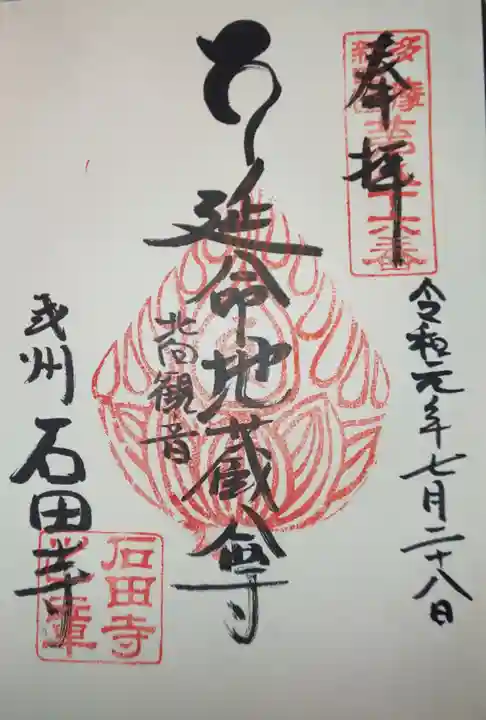 奉拝
多摩
第五十六番
令和元年七月二十八日
延命地蔵尊
北向観音
武州 石田寺
石田寺